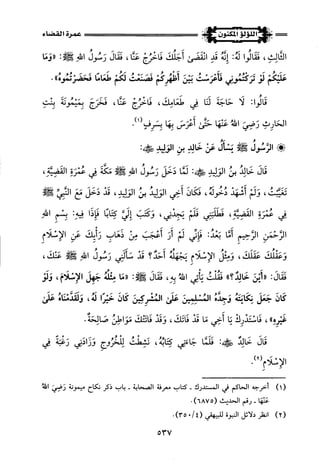 اللؤلؤ المكنون
عمرة القضاء
الثَّالِثِ، فَقَالُوا لَهُ: إِنَّهُ قَدِ انْقَضَى أَجَلُكَ فَاخْرُجْ عَنَّا، فَقَالَ رَسُولُ اللهِ ﷺ: «وَمَا
عَلَيْكُمْ لَوْ تَرَكْتُمُونِي فَأَعْرَسْتُ بَيْنَ أَظْهُرِكُمْ فَصَنَعْتُ لَكُمْ طَعَامًا فَحَضَرْتُمُوهُ».
قَالُوا: لَا حَاجَةَ لَنَا فِي طَعَامِكَ، فَاخْرُجْ عَنَّا، فَخَرَجَ بِمَيْمُونَةَ بِنْتِ
الْحَارِثِ رَضِيَ اللهُ عَنْهَا حَتَّى أَعْرَسَ بِهَا بِسَرِفَ(١).
❁ الرَّسُولُ ﷺ يَسْأَلُ عَنْ خَالِدِ بنِ الوَلِيدِ ﷺ:
قَالَ خَالِدُ بنُ الْوَلِيدِ ﷺ: لَمَّا دَخَلَ رَسُولُ اللهِ ﷺ مَكَّةَ فِي عُمْرَةِ القَضِيَّةِ،
تَغَيَّبْتُ، وَلَمْ أَشْهَدْ دُخُولَهُ، فَكَانَ أَخِي الْوَلِيدُ بنُ الوَلِيدِ، قَدْ دَخَلَ مَعَ النَّبِيِّ ﷺ
فِي عُمْرَةِ القَضِيَّةِ، فَطَلَبَنِي فَلَمْ يَجِدْنِي، وَكَتَبَ إِلَيَّ كِتَابًا فَإِذَا فِيهِ: بِسْمِ اللهِ
الرَّحْمَنِ الرَّحِيمِ أَمَّا بَعْدُ: فَإِنِّي لَمْ أَرَ أَعْجَبَ مِنْ ذَهَابِ رَأْيِكَ عَنِ الْإِسْلَامِ
وَعَقْلُكَ عَقْلُكَ، وَمِثْلُ الإِسْلَامِ يَجْهَلُهُ أَحَدٌ؟ قَدْ سَأَلَنِي رَسُولُ اللهِ ﷺ عَنْكَ،
فَقَالَ: «أَيْنَ خَالِدٌ؟» فَقُلْتُ يَأْتِي اللهُ بِهِ، فَقَالَ ﷺ: «مَا مِثْلُهُ جَهِلَ الْإِسْلَامَ، وَلَوْ
كَانَ جَعَلَ نِكَايَتَهُ وَجِدَّهُ الْمُسْلِمِينَ عَلَى الْمُشْرِكِينَ كَانَ خَيْرًا لَهُ، وَلَقَدَّمْنَاهُ عَلَى
غَيْرِهِ»، فَاسْتَدْرِكْ يَا أَخِي مَا قَدْ فَاتَكَ، وَقَدْ فَاتَكَ مَوَاطِنُ صَالِحَةٌ.
قَالَ خَالِدٌ ﷺ: فَلَمَّا جَاءَنِي كِتَابُهُ، نَشِطْتُ لِلْخُرُوجِ وَزَادَنِي رَغْبَةً فِي
الإِسْلَامِ(٢).
(١) أخرجه الحاكم في المستدرك - كتاب معرفة الصحابة - باب ذكر نكاح ميمونة رَضِيَ اللهُ
عَنْهَا - رقم الحديث (٦٨٧٥).
(٢) انظر دلائل النبوة للبيهقي (٣٥٠/٤).
٥٣٧